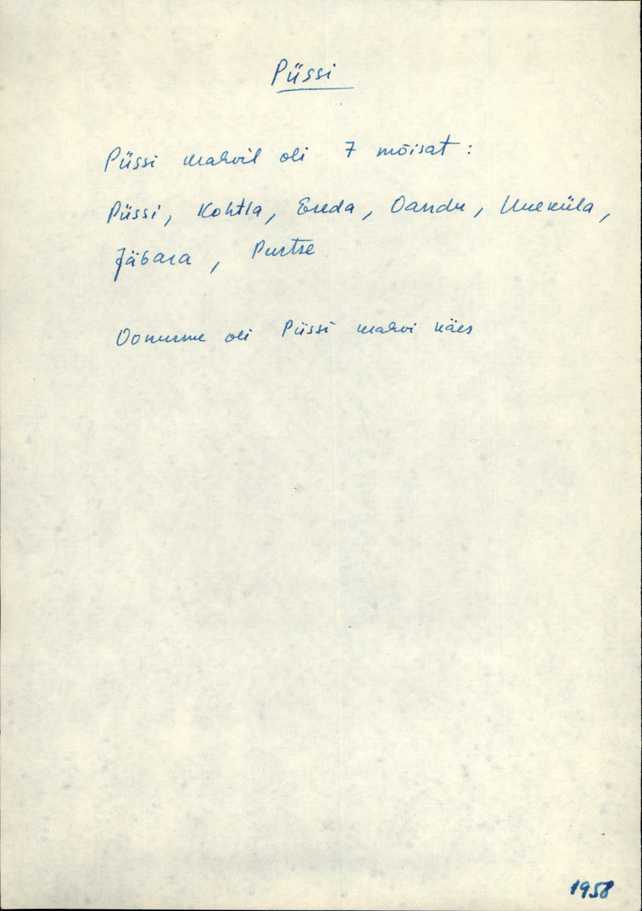 Püssi
Püssi mahvil oli 7 mõisat:
Püssi, Kohtla, Ereda, Oandu, Uueküla,
Jäbara, Purtse
Oonurme oli Püssi mahvi käes
1958